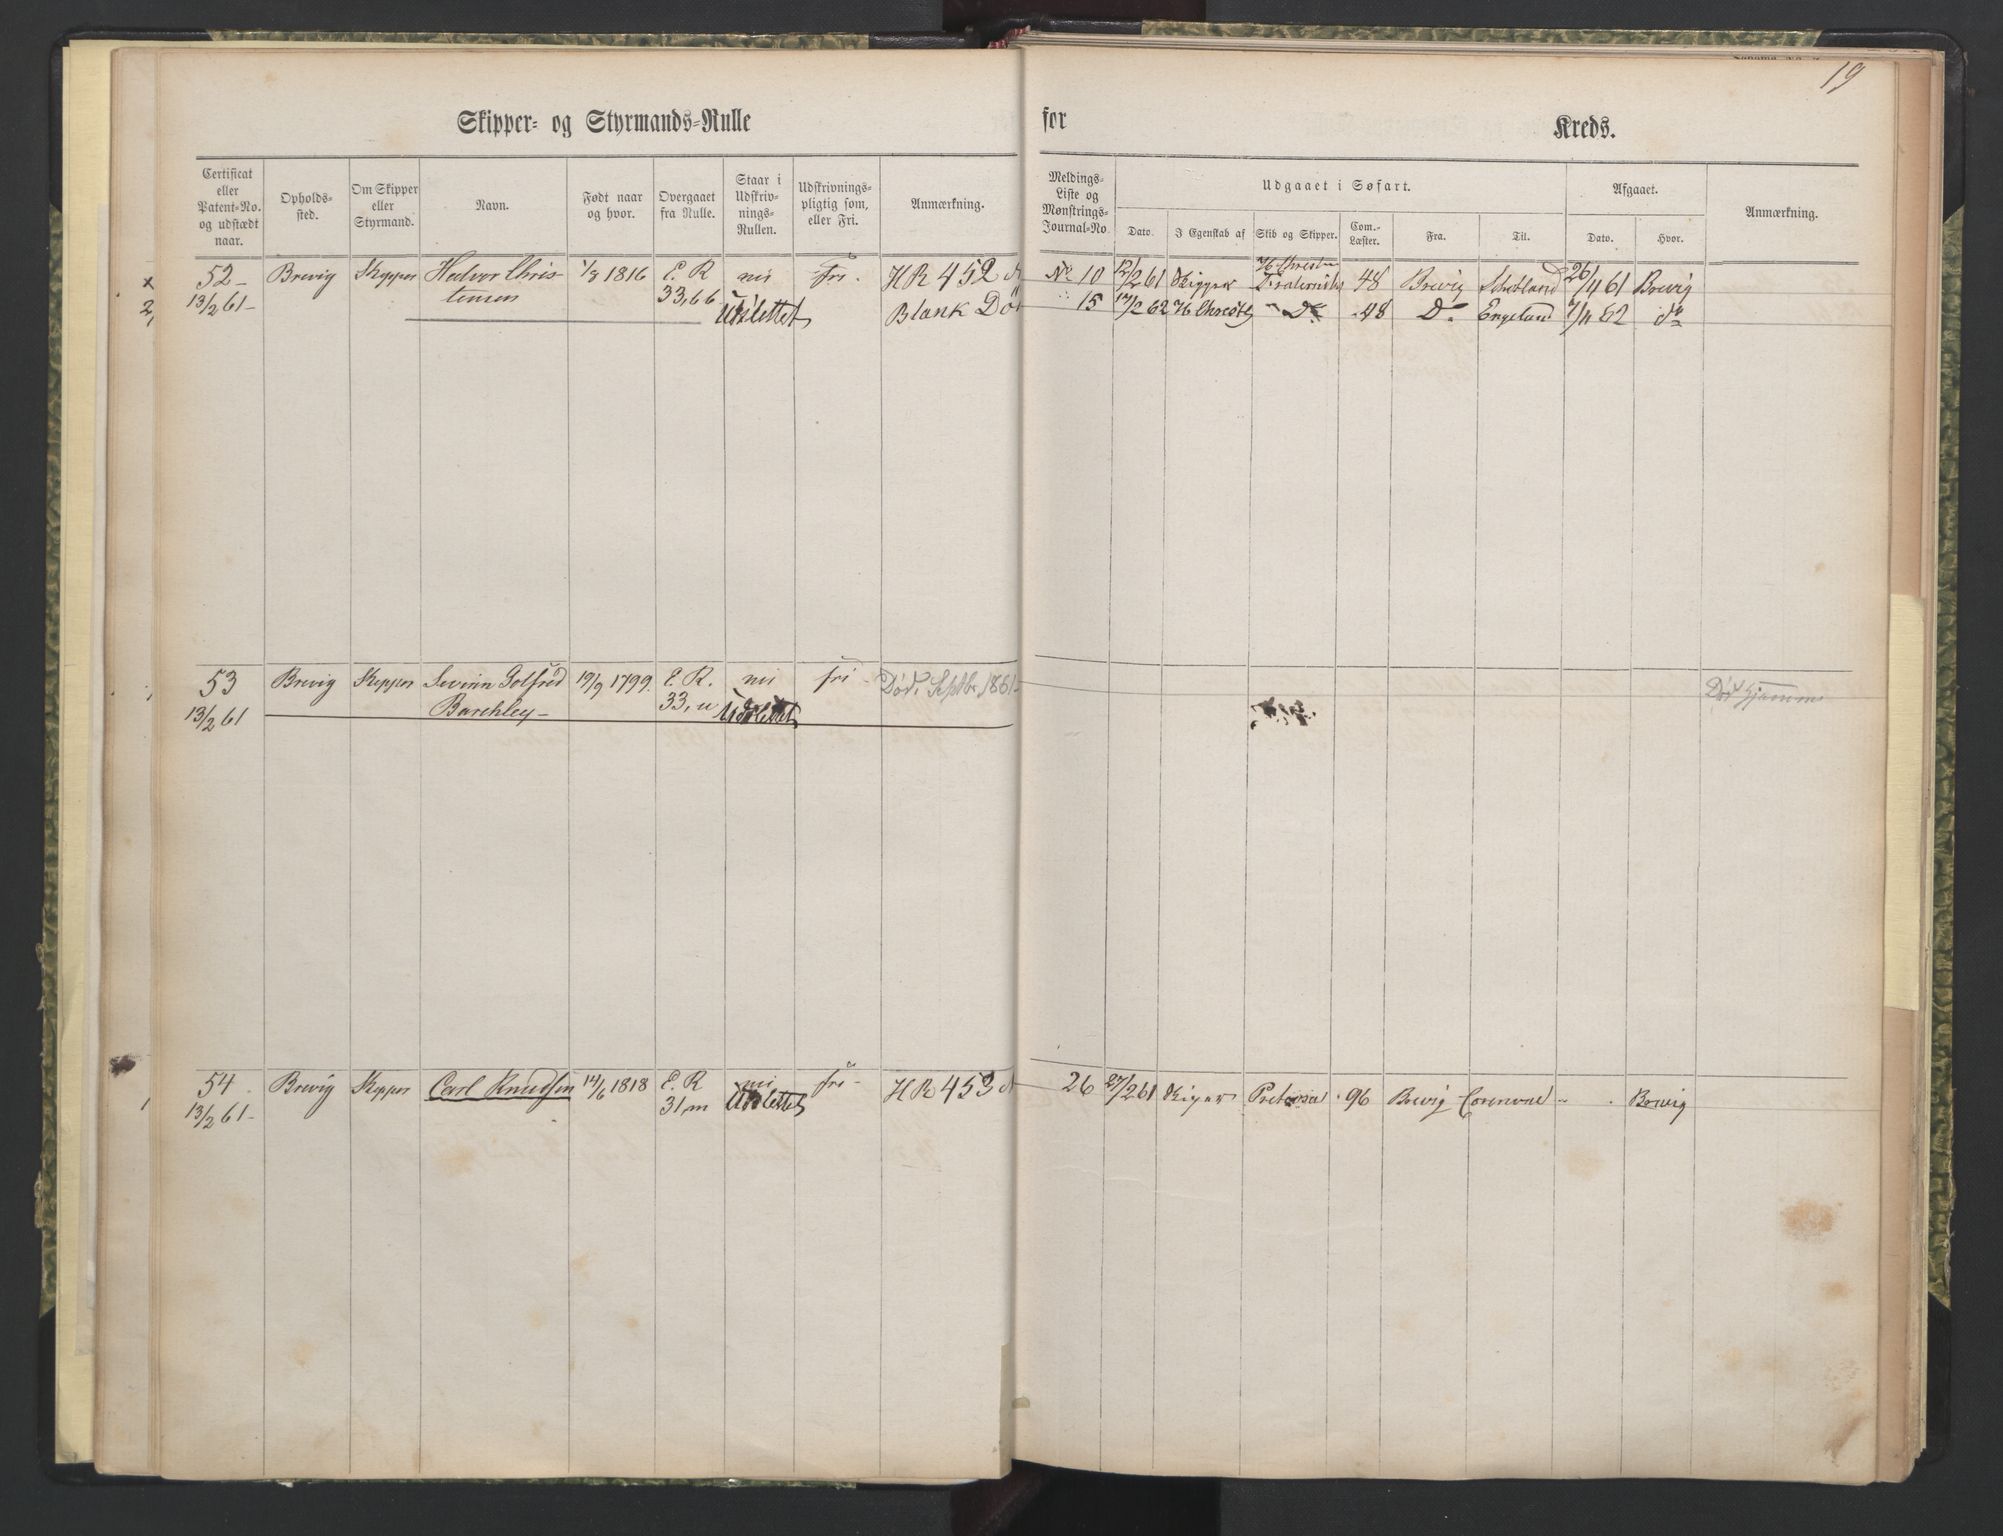 19
Skipper- og Styrmands-Rulle
for Kreds.
Certificat eller Patent-No. og udstædt naar.
Opholds-sted.
Om Skipper eller Styrmand.
Navn.
Født naar og hvor.
Overgaaet fra Rulle.
Staar i Udskriv-nings-Rullen.
Udskrivnings-pligtig som, eller Fri.
Anmærkning.
Meldings-Liste og Mønstrings-Journal-No.
Udgaaet i Søfart.
Afgaaet.
Anmærkning.
Dato.
I Egenskab af
Skib og Skipper.
Com.-Læster.
Fra.
Til.
Dato.
Hvor.
x 52- Brevig Skipper Halvor Chris 1/8 1816 E. R nei fri. HR 452
2, 13/2 61- tensen 33,66 Udslettet Blank Død
No 10 12/2 61 Skipper 48 Brevig Skotland 26/4 61 Brevig
15 17/2 62 Do 48 Do Engeland 7/11 62 do
53 Brevig Skipper Golfred 19/9 1799. E. R. nei fri Død, Septbr 1861
13/2 61 Barchley- 33, u Udslettet
Død Hjemme
54 Brevig Skipper Carl Knudsen 14/6 1818 E. R nei fri- HR 453
13/2 61- 31, m Udslettet
26 27/2 61 96 Brevig Brevig